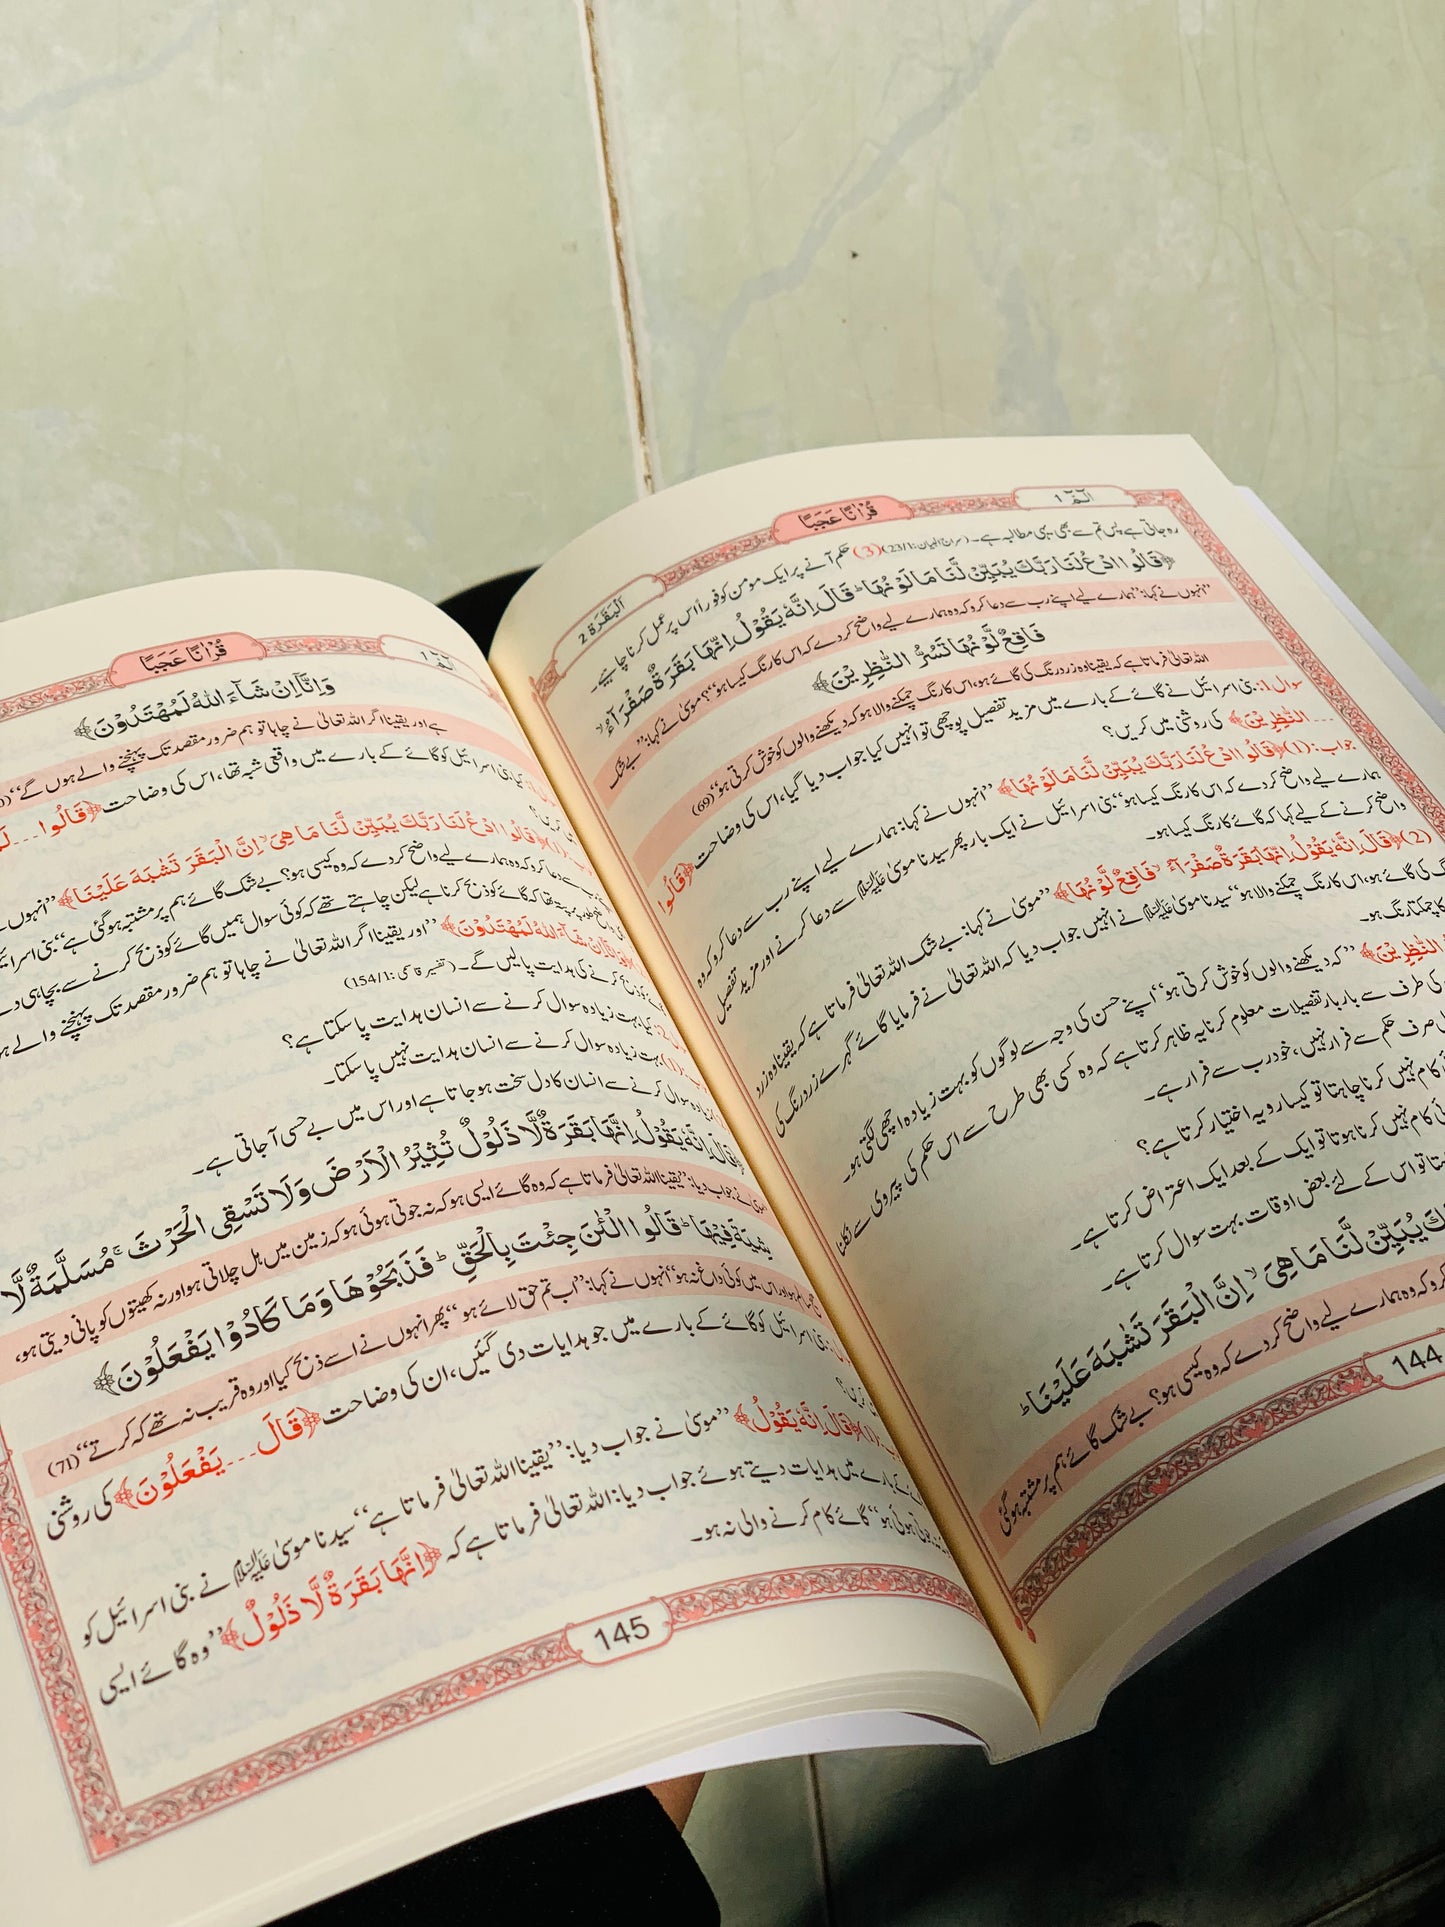 الٓمّٓ 1
قُرْاٰنًا عَجَبًا
اَلْبَقَرَة 2
رہ جاتی ہے پس تم سے بھی یہی مطالبہ ہے۔ (23/1) (3) حکم آنے پر ایک مومن کو فوراً اس پر عمل کرنا چاہیے۔
﴿قَالُوا ادْعُ لَنَا رَبَّكَ يُبَيِّنْ لَّنَا مَا لَوْنُهَا ؕ قَالَ اِنَّهٗ يَقُوْلُ اِنَّهَا بَقَرَةٌ صَفْرَآءُ ۙ
”انہوں نے کہا: ”ہمارے لیے اپنے رب سے دعا کرو کہ وہ ہمارے لیے واضح کردے کہ اس کا رنگ کیسا ہو“؟ موسیٰ نے کہا: ”بے شک
فَاقِعٌ لَّوْنُهَا تَسُرُّ النّٰظِرِيْنَ﴾
اللہ تعالیٰ فرماتا ہے کہ یقیناً وہ زرد رنگ کی گائے ہو، اس کا رنگ چمکنے والا ہو کہ دیکھنے والوں کو خوش کرتی ہو“ (69)
سوال 1: بنی اسرائیل نے گائے کے بارے میں مزید تفصیل پوچھی تو انہیں کیا جواب دیا گیا، اس کی وضاحت ﴿قَالُوا
... النّٰظِرِيْنَ﴾ کی روشنی میں کریں؟
جواب: (1) ﴿قَالُوا ادْعُ لَنَا رَبَّكَ يُبَيِّنْ لَّنَا مَا لَوْنُهَا﴾ ”انہوں نے کہا: ہمارے لیے اپنے رب سے دعا کرو کہ وہ
ہمارے لیے واضح کردے کہ اس کا رنگ کیسا ہو“ بنی اسرائیل نے ایک بار پھر سیدنا موسیٰ علیہ السلام سے دعا کرنے اور مزید تفصیل
واضح کرنے کے لیے کہا کہ گائے کا رنگ کیسا ہو۔
(2) ﴿قَالَ اِنَّهٗ يَقُوْلُ اِنَّهَا بَقَرَةٌ صَفْرَآءُ ۙ فَاقِعٌ لَّوْنُهَا﴾ ”موسیٰ نے کہا: بے شک اللہ تعالیٰ فرماتا ہے کہ یقیناً وہ زرد
رنگ کی گائے ہو، اس کا رنگ چمکنے والا ہو“ سیدنا موسیٰ علیہ السلام نے انہیں جواب دیا کہ اللہ تعالیٰ نے فرمایا گائے گہرے زرد رنگ کی
چمکتا رنگ ہو۔
النّٰظِرِيْنَ﴾ ”کہ دیکھنے والوں کو خوش کرتی ہو“ اپنے حسن کی وجہ سے لوگوں کو بہت زیادہ اچھی لگتی ہو۔
کی طرف سے بار بار تفصیلات معلوم کرنا یہ ظاہر کرتا ہے کہ وہ کسی بھی طرح سے اس حکم کی پیروی سے نکلنا
صرف حکم سے فرار نہیں، خود رب سے فرار ہے۔
کام نہیں کرنا چاہتا تو کیسا رویہ اختیار کرتا ہے؟
کام نہیں کرنا ہوتا تو ایک کے بعد ایک اعتراض کرتا ہے۔
تو اس کے لئے بعض اوقات بہت سوال کرتا ہے۔
يُبَيِّنْ لَّنَا مَا هِيَ ۙ اِنَّ الْبَقَرَ تَشٰبَهَ عَلَيْنَا ؕ
کرو کہ وہ ہمارے لیے واضح کردے کہ وہ کیسی ہو؟ بے شک گائے ہم پر مشتبہ ہوگئی
144
الٓمّٓ 1
قُرْاٰنًا عَجَبًا
وَاِنَّاۤ اِنْ شَآءَ اللّٰهُ لَمُهْتَدُوْنَ﴾
ہے اور یقیناً اگر اللہ تعالیٰ نے چاہا تو ہم ضرور مقصد تک پہنچنے والے ہوں گے“
کیا بنی اسرائیل کو گائے کے بارے میں واقعی شبہ تھا، اس کی وضاحت ﴿قَالُوا ...
کریں؟
(1) ﴿قَالُوا ادْعُ لَنَا رَبَّكَ يُبَيِّنْ لَّنَا مَا هِيَ ۙ اِنَّ الْبَقَرَ تَشٰبَهَ عَلَيْنَا﴾ ”انہوں
سے دعا کرو کہ وہ ہمارے لیے واضح کردے کہ وہ کیسی ہو؟ بے شک گائے ہم پر مشتبہ ہوگئی ہے“ بنی اسرائیل
تھا کہ گائے کو ذبح کرنا ہے لیکن چاہتے تھے کہ کوئی سوال ہمیں گائے کو ذبح کرنے سے بچا ہی دے
﴿وَاِنَّاۤ اِنْ شَآءَ اللّٰهُ لَمُهْتَدُوْنَ﴾ ”اور یقیناً اگر اللہ تعالیٰ نے چاہا تو ہم ضرور مقصد تک پہنچنے والے
کو ذبح کرنے کی ہدایت پالیں گے۔ (تفسیر قاسمی: 154/1)
2: کیا بہت زیادہ سوال کرنے سے انسان ہدایت پا سکتا ہے؟
(1) بہت زیادہ سوال کرنے سے انسان ہدایت نہیں پا سکتا۔
زیادہ سوال کرنے سے انسان کا دل سخت ہو جاتا ہے اور اس میں بے حسی آجاتی ہے۔
﴿قَالَ اِنَّهٗ يَقُوْلُ اِنَّهَا بَقَرَةٌ لَّا ذَلُوْلٌ تُثِيْرُ الْاَرْضَ وَلَا تَسْقِى الْحَرْثَ ۚ مُسَلَّمَةٌ لَّا
موسیٰ نے جواب دیا: ”یقیناً اللہ تعالیٰ فرماتا ہے کہ وہ گائے ایسی ہو کہ نہ جوتی ہوئی ہو کہ زمین میں ہل چلاتی ہو اور نہ کھیتوں کو پانی دیتی ہو،
شِيَةَ فِيْهَا ؕ قَالُوا الْـٰٔنَ جِئْتَ بِالْحَقِّ ؕ فَذَبَحُوْهَا وَمَا كَادُوْا يَفْعَلُوْنَ﴾
صحیح سالم ہو اور اس میں کوئی داغ نہ ہو“ انہوں نے کہا: ”اب تم حق لائے ہو“ پھر انہوں نے اسے ذبح کیا اور وہ قریب نہ تھے کہ کرتے“ (71)
بنی اسرائیل کو گائے کے بارے میں جو ہدایات دی گئیں، ان کی وضاحت ﴿قَالَ ... يَفْعَلُوْنَ﴾ کی روشنی
میں کریں؟
(1) ﴿قَالَ اِنَّهٗ يَقُوْلُ﴾ ”موسیٰ نے جواب دیا: ”یقیناً اللہ تعالیٰ فرماتا ہے“ سیدنا موسیٰ علیہ السلام نے بنی اسرائیل کو
کے بارے میں ہدایات دیتے ہوئے جواب دیا: اللہ تعالیٰ فرماتا ہے کہ ﴿اِنَّهَا بَقَرَةٌ لَّا ذَلُوْلٌ﴾ ”وہ گائے ایسی
جوتی ہوئی ہو“ گائے کام کرنے والی نہ ہو۔
145